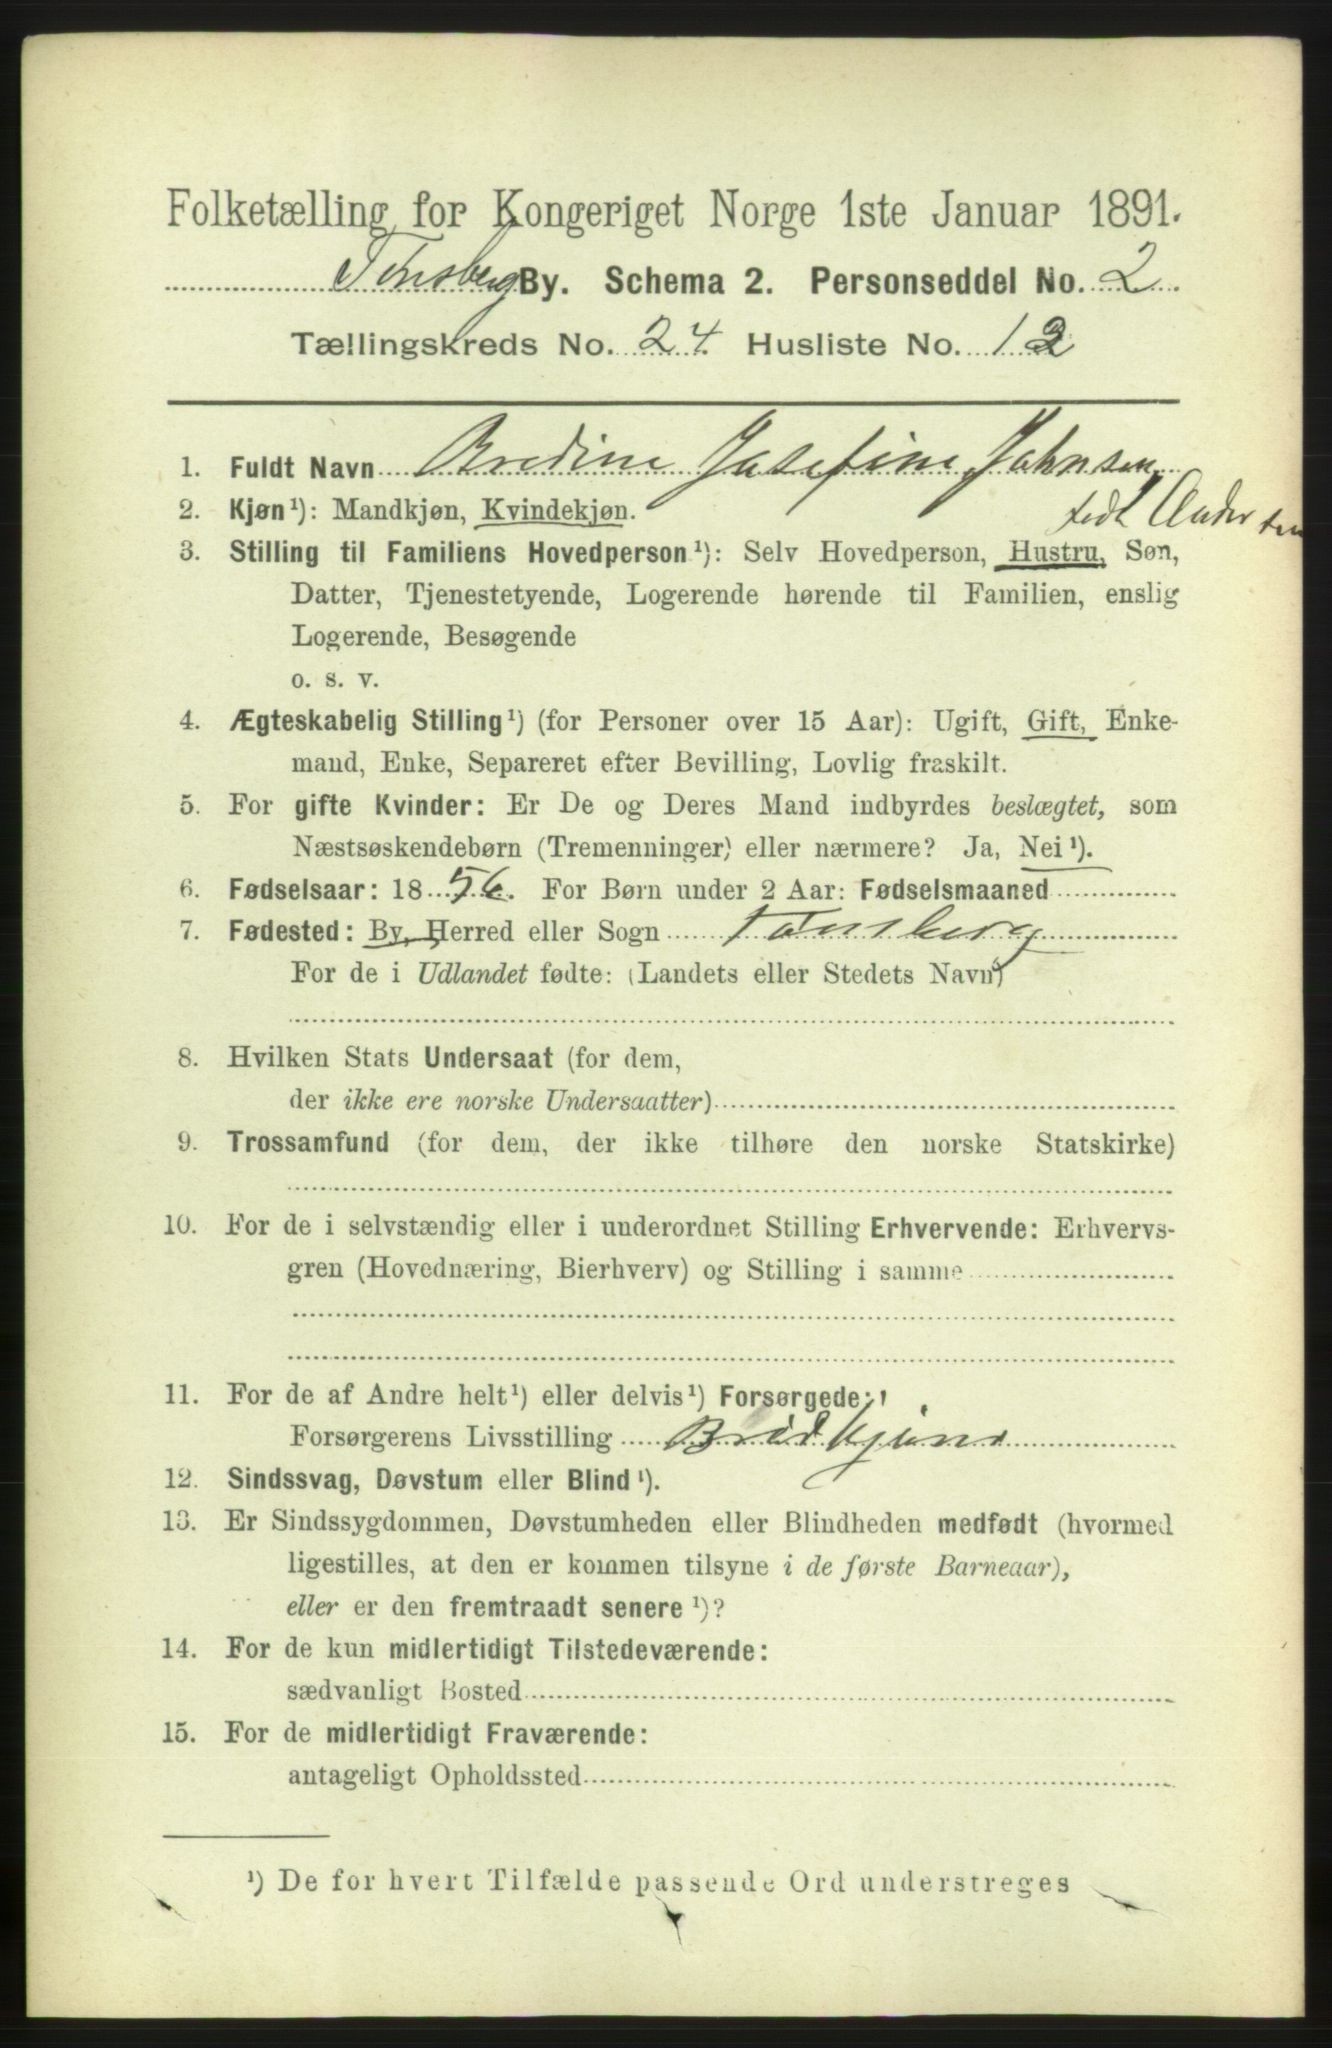 Folketælling for Kongeriget Norge 1ste Januar 1891.
Tønsberg By. Schema 2. Personseddel No. 2
Tællingskreds No. 24. Husliste No. 12
1. Fuldt Navn Andine Josefine Johnsen,
født Andersen
2. Kjøn¹): Mandkjøn, Kvindekjøn.
3. Stilling til Familiens Hovedperson¹): Selv Hovedperson, Hustru, Søn,
Datter, Tjenestetyende, Logerende hørende til Familien, enslig
Logerende, Besøgende
o. s. v.
4. Ægteskabelig Stilling¹) (for Personer over 15 Aar): Ugift, Gift, Enke-
mand, Enke, Separeret efter Bevilling, Lovlig fraskilt.
5. For gifte Kvinder: Er De og Deres Mand indbyrdes beslægtet, som
Næstsøskendebørn (Tremenninger) eller nærmere? Ja, Nei¹).
6. Fødselsaar: 1856. For Børn under 2 Aar: Fødselsmaaned
7. Fødested: By, Herred eller Sogn Tønsberg
For de i Udlandet fødte: (Landets eller Stedets Navn)
8. Hvilken Stats Undersaat (for dem,
der ikke ere norske Undersaatter)
9. Trossamfund (for dem, der ikke tilhøre den norske Statskirke)
10. For de i selvstændig eller i underordnet Stilling Erhvervende: Erhvervs-
gren (Hovednæring, Bierhverv) og Stilling i samme
11. For de af Andre helt¹) eller delvis¹) Forsørgede:
Forsørgerens Livsstilling
12. Sindssvag, Døvstum eller Blind¹).
13. Er Sindssygdommen, Døvstumheden eller Blindheden medfødt (hvormed
ligestilles, at den er kommen tilsyne i de første Barneaar),
eller er den fremtraadt senere¹)?
14. For de kun midlertidigt Tilstedeværende:
sædvanligt Bosted
15. For de midlertidigt Fraværende:
antageligt Opholdssted
¹) De for hvert Tilfælde passende Ord understreges